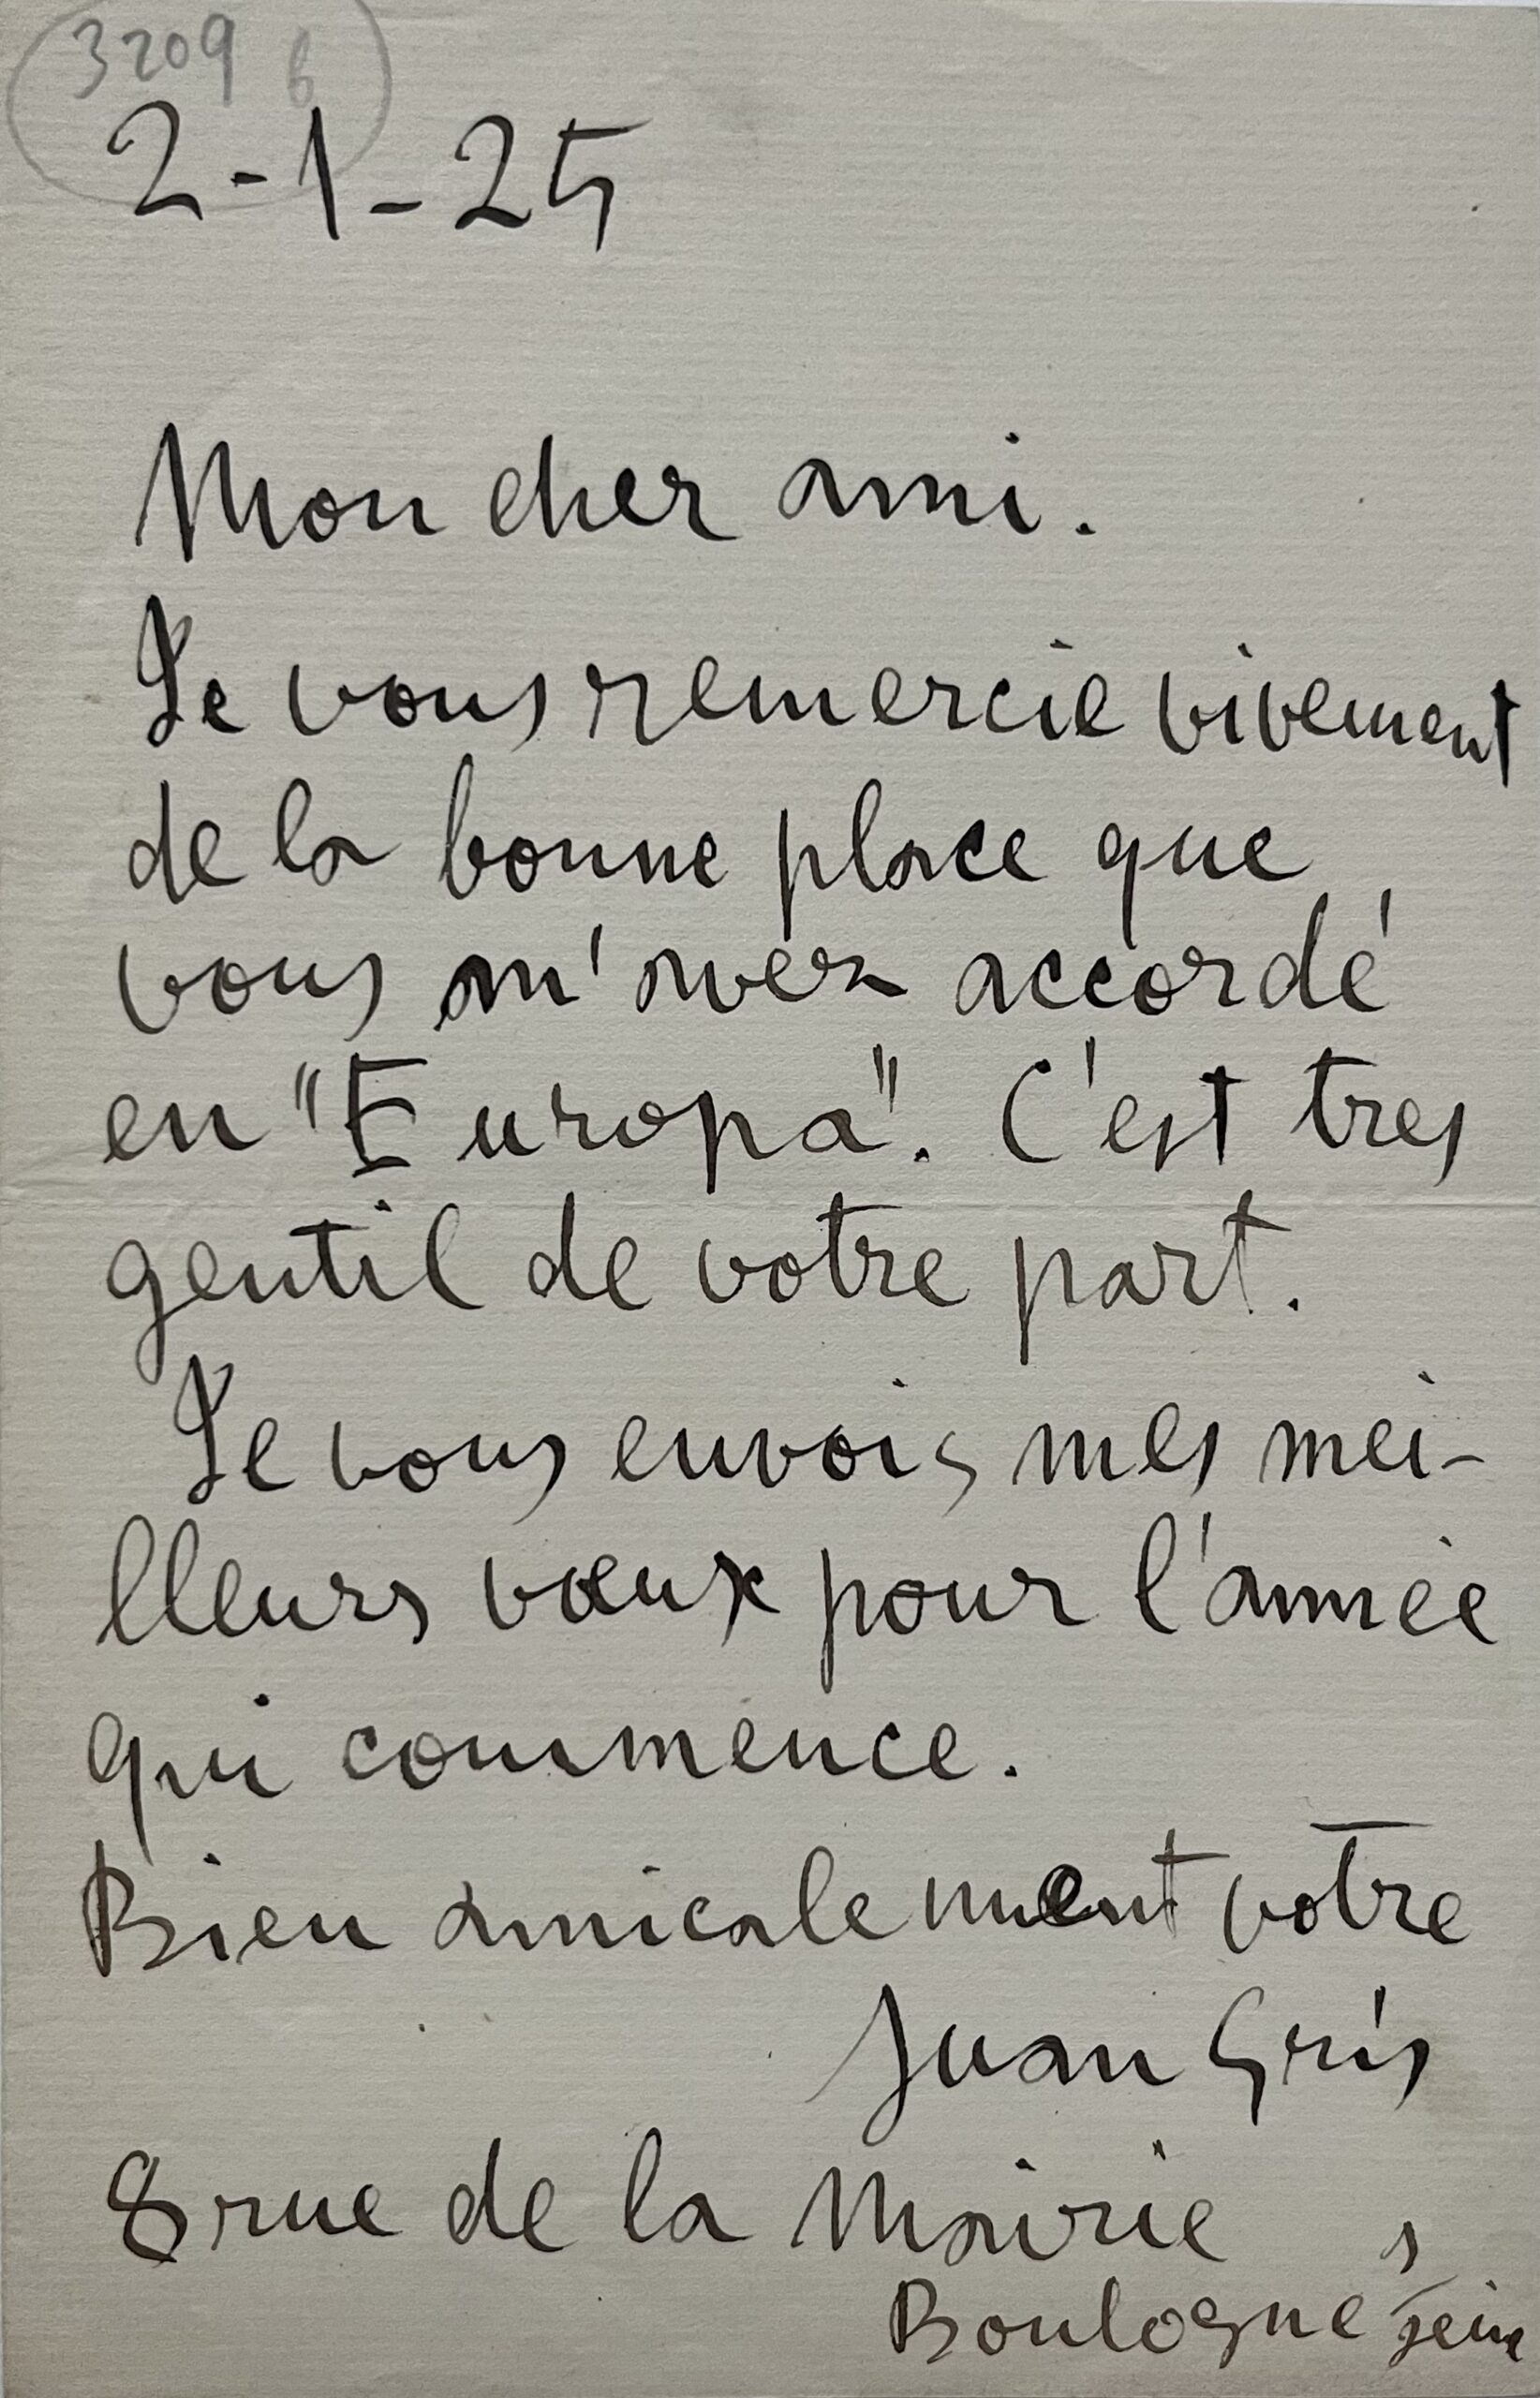 3209 6
2-1-25
Mon cher ami.
Je vous remercie vivement
de la bonne place que
vous m'avez accordé
en "Europa". C'est tres
gentil de votre part.
Je vous envois mes mei-
lleurs vœux pour l'année
qui commence.
Bien amicalement votre
Juan Gris
8 rue de la Mairie
Boulogne s/seine